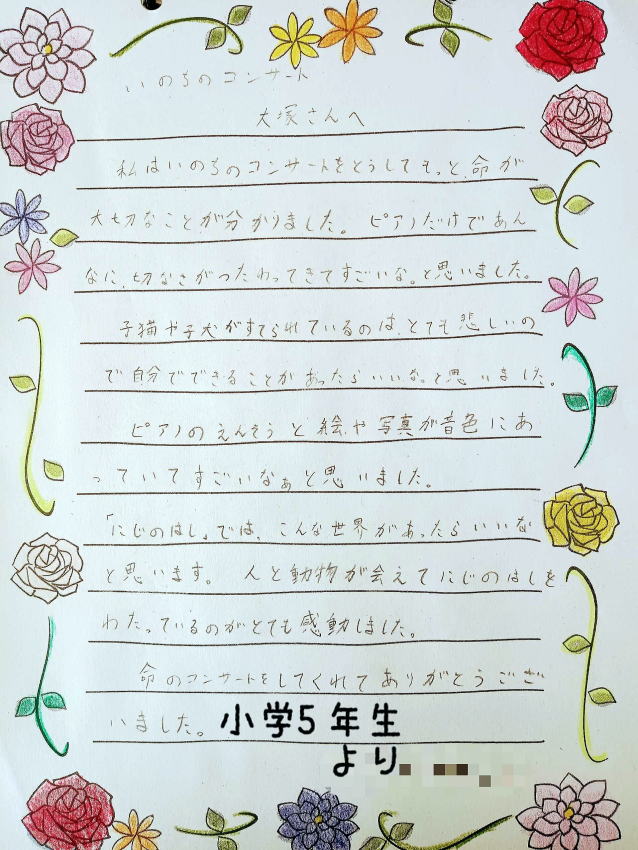 いのちのコンサート
大塚さんへ
私はいのちのコンサートをとうしてもっと、命が
大切なことが分かりました。ピアノだけであん
なに、切なさがつたわってきてすごいな。と思いました。
子猫や子犬がすてられているのは、とても悲しいの
で自分でできることがあったらいいな。と思いました。
ピアノのえんそうと絵や写真が音色にあ
っていてすごいなぁと思いました。
「にじのはし」では、こんな世界があったらいいな
と思います。人と動物が会えてにじのはしを
わたっているのがとても感動しました。
命のコンサートをしてくれてありがとうござ
いました。小学5年生
より